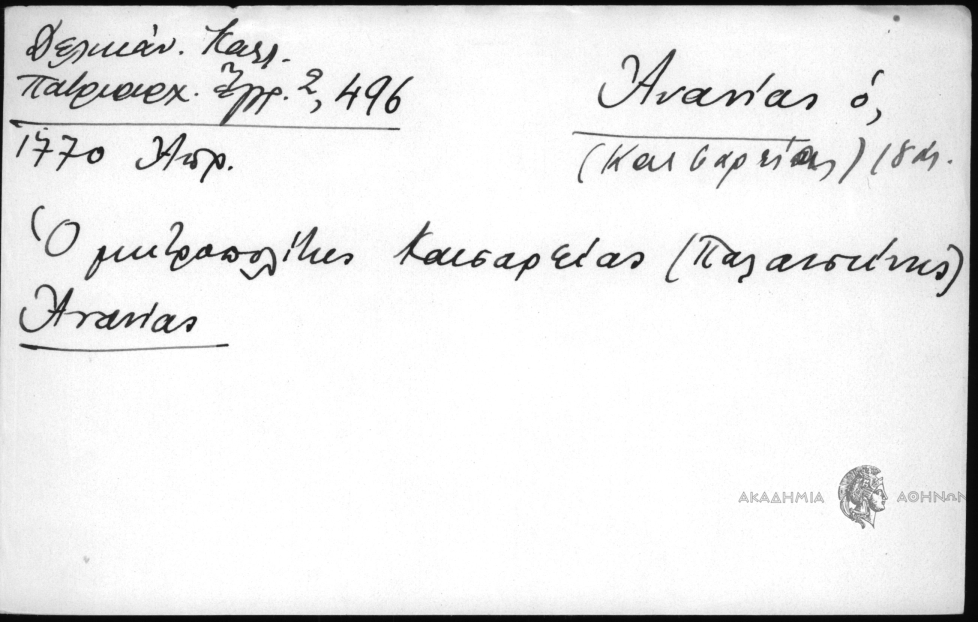 Δελικάν. Καλλ.
Πατριαρχ. Ἔγγρ. 2, 496
1770 Ἀπρ.
Ἀνανίας ὁ,
(Καισαρείας) 18 αἰ.
Ὁ μητροπολίτης Καισαρείας (Παλαιστίνης)
Ἀνανίας
ΑΚΑΔΗΜΙΑ ΑΘΗΝΩΝ